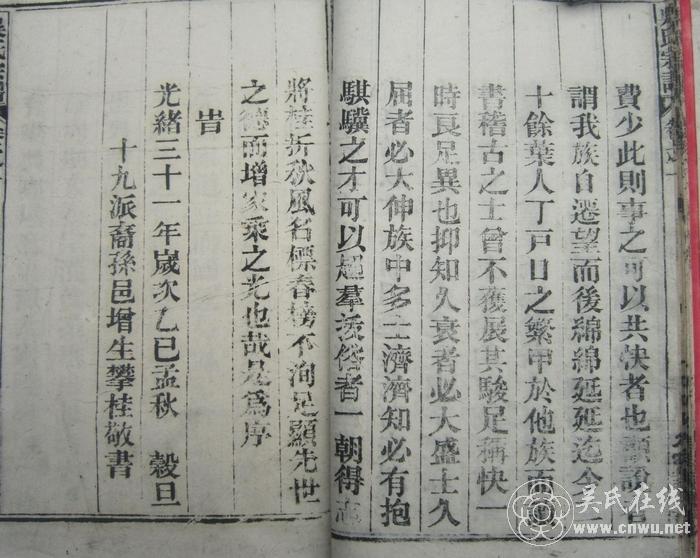 吳氏宗譜 卷之一
費少此則事之可以共快者也顧說
謂我族自遷望而後綿綿延延迄今
十餘葉人丁戸口之繁甲於他族而
書稽古之士曾不獲展其駿足稱快一
時良足異也抑知久衰者必大盛士久
屈者必大伸族中多士濟濟知必有抱
騏驥之才可以超羣拔俗者一朝得志
將桂折秋風名標春榜不洵足顯先世
之德而增家乘之光也哉是爲序
旹
光緒三十一年歲次乙巳孟秋 穀旦
十九派裔孫邑增生攀桂敬書
吴氏在线
www.cnwu.net